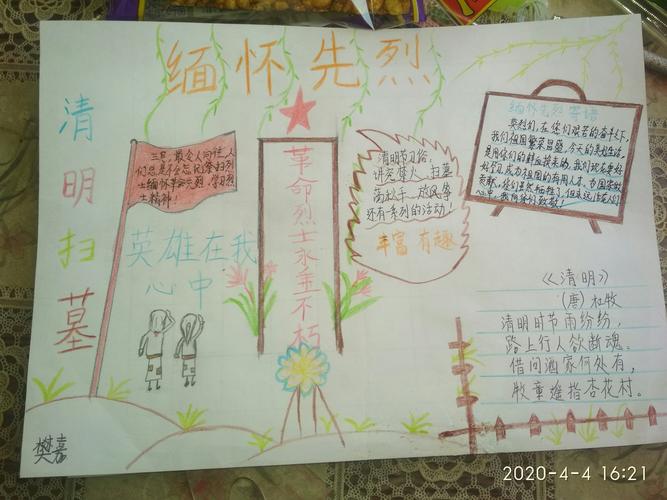 缅怀先烈
清明扫墓
三月,最令人向往,人
们总是不会忘记祭扫烈
士缅怀革命先烈,学习烈
士精神!
英雄在我
心中
革命烈士永垂不朽
清明节习俗
讲究禁火、扫墓
荡秋千、放风筝
还有一系列的活动!
丰富 有趣
缅怀先烈寄语
英烈们,在您们艰苦的奋斗下,
我们祖国繁荣昌盛,今天的美好生活,
是用你们的鲜血换来的,我们现在要好
好学习,成为祖国的有用人才,为国家做
贡献,
我向你们致敬!
《清明》
(唐)杜牧
清明时节雨纷纷,
路上行人欲断魂。
借问酒家何处有,
牧童遥指杏花村。
樊嘉
2020-4-4 16:21